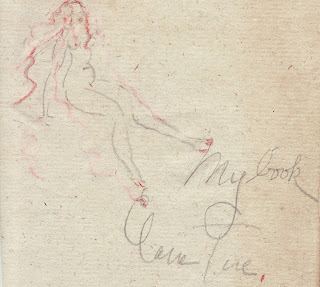 My book
Clara Tice.